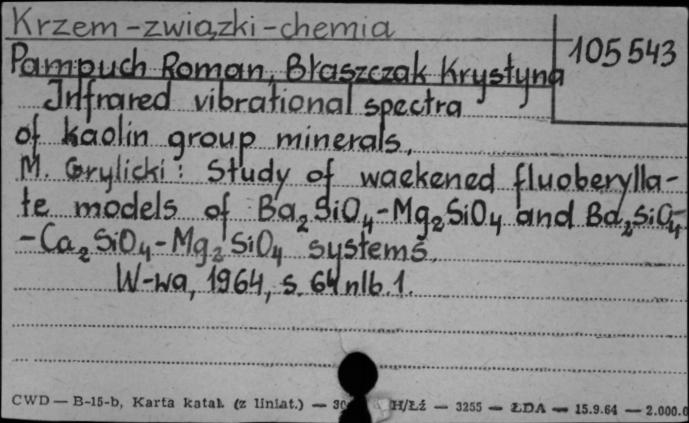 Krzem-związki-chemia
105543
Pampuch Roman, Błaszczak Krystyna
Infrared vibrational spectra
of kaolin group minerals.
M. Grylicki: Study of waekened fluoberylla-
te models of Ba₂SiO₄-Mg₂SiO₄ and Ba₂SiO₄-
-Ca₂SiO₄-Mg₂SiO₄ systems.
W-wa, 1964, s. 64 nlb. 1.
CWD — B-15-b, Karta katal. (z liniat.) — H/Łź — 3255 — ŁDA — 15.9.64 — 2.000.0